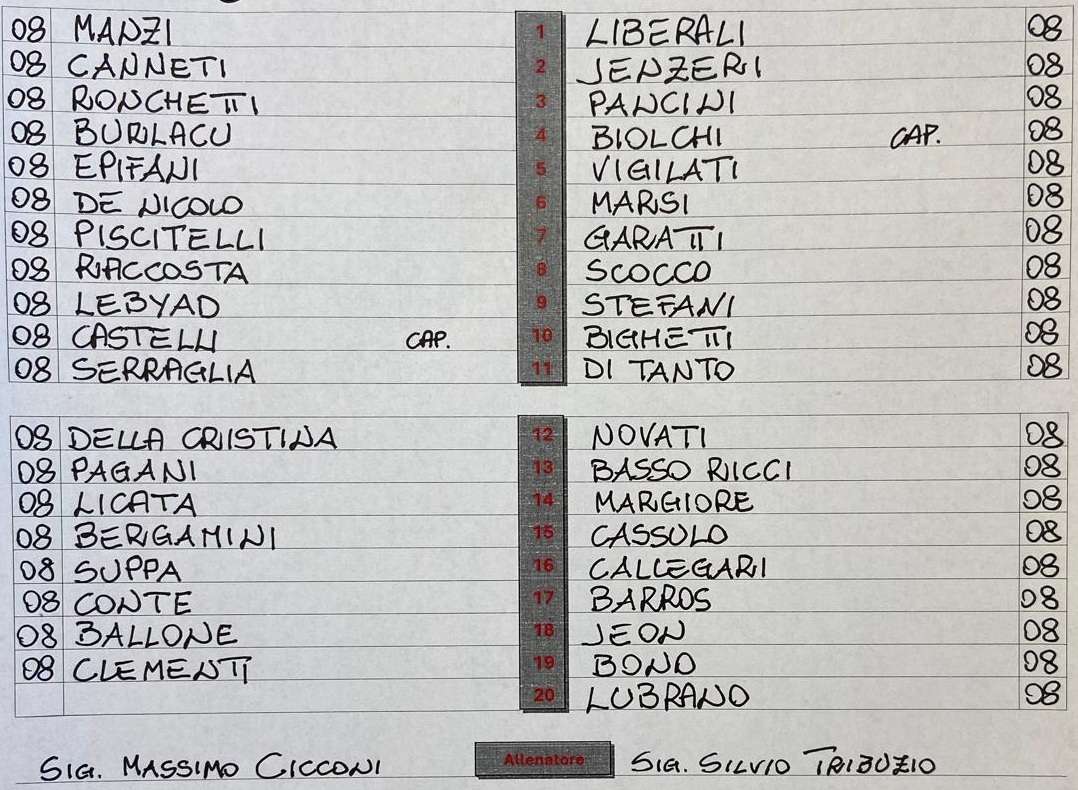 08 MANZI 1 LIBERALI 08
08 CANNETI 2 JENZERI 08
08 RONCHETTI 3 PANCINI 08
08 BURLACU 4 BIOLCHI CAP. 08
08 EPIFANI 5 VIGILATI 08
08 DE NICOLO 6 MARSI 08
08 PISCITELLI 7 GARATTI 08
08 RIACCOSTA 8 SCOCCO 08
08 LEBYAD 9 STEFANI 08
08 CASTELLI CAP. 10 BIGHETTI 08
08 SERRAGLIA 11 DI TANTO 08
08 DELLA CRISTINA 12 NOVATI 08
08 PAGANI 13 BASSO RICCI 08
08 LICATA 14 MARGIORE 08
08 BERGAMINI 15 CASSULO 08
08 SUPPA 16 CALLEGARI 08
08 CONTE 17 BARROS 08
08 BALLONE 18 JEON 08
08 CLEMENTI 19 BONO 08
20 LUBRANO 08
SIG. MASSIMO CICCONI Allenatore SIG. SILVIO TRIBUZIO